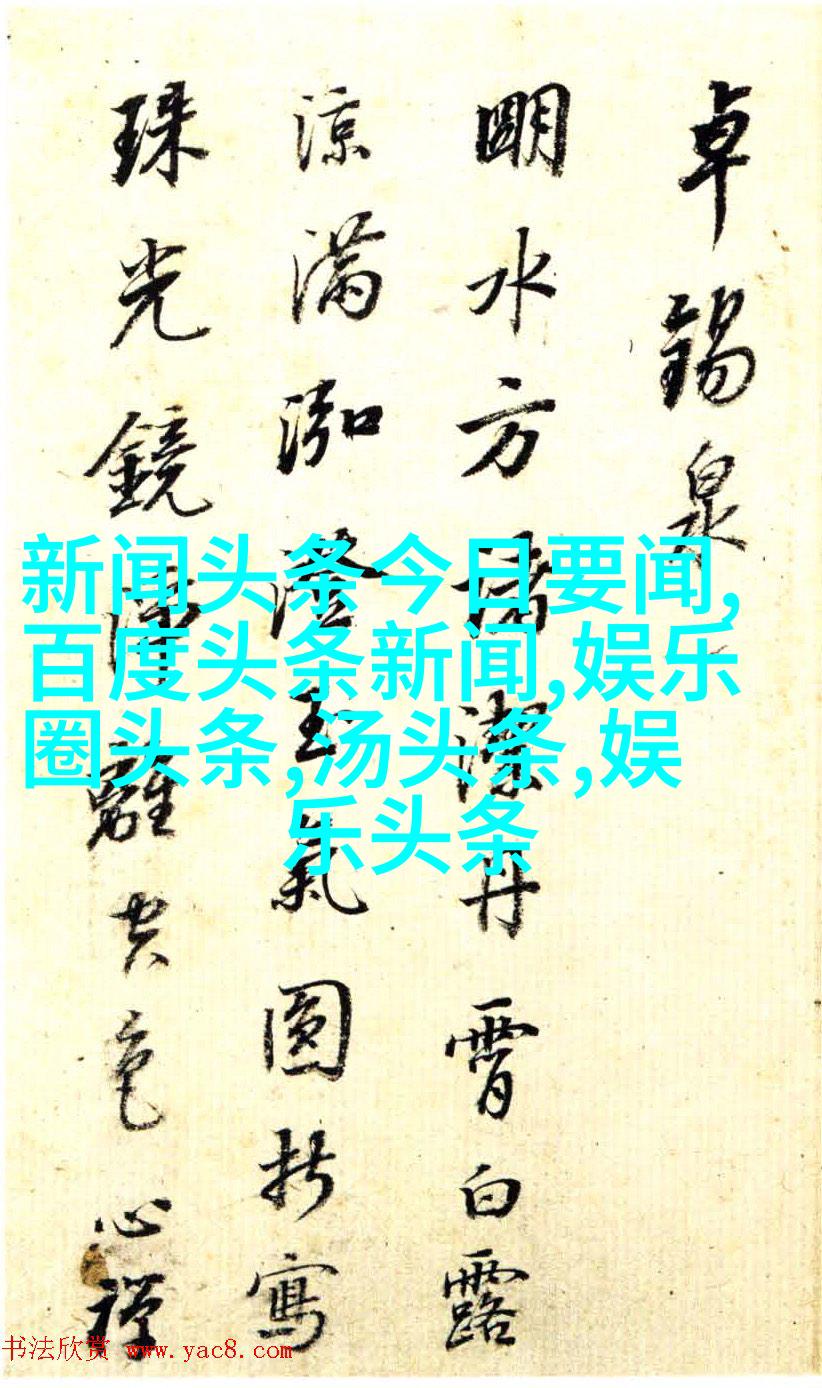 卓錫泉
朙水方諸潔丹霄白露
涼滿泓澄玉氣圓折寫
珠光鏡離空色心禪
新闻头条今日要闻,
百度头条新闻,娱乐
圈头条,汤头条,娱
乐头条
书法欣赏 www.yac8.com